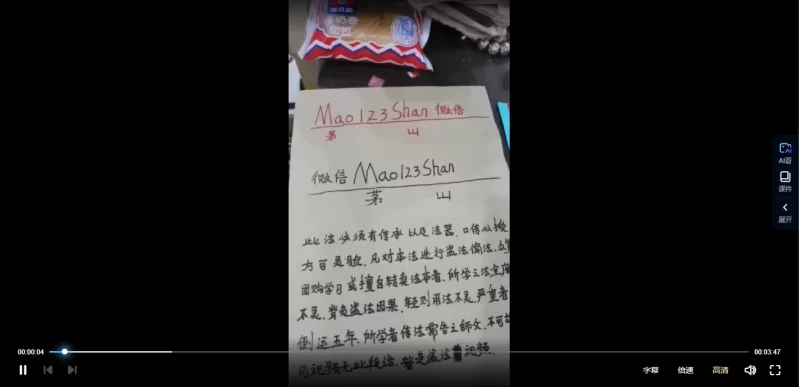 Mao123Shan 微信
茅 山
微信 Mao123Shan
茅 山
此法必须有传承以及法器,口传心授
方可灵验,凡对本法进行盗法偷法,
团购学习或擅自转卖法本者,所学之法全
不灵,背负盗法因果,轻则用法不灵,严重者
倒运五年,所学者传法需告之师父,不可
凡视频无此段话,皆是盗法视频.
AI看
课件
展开
00:00:04
00:03:47
字幕
倍速
高清